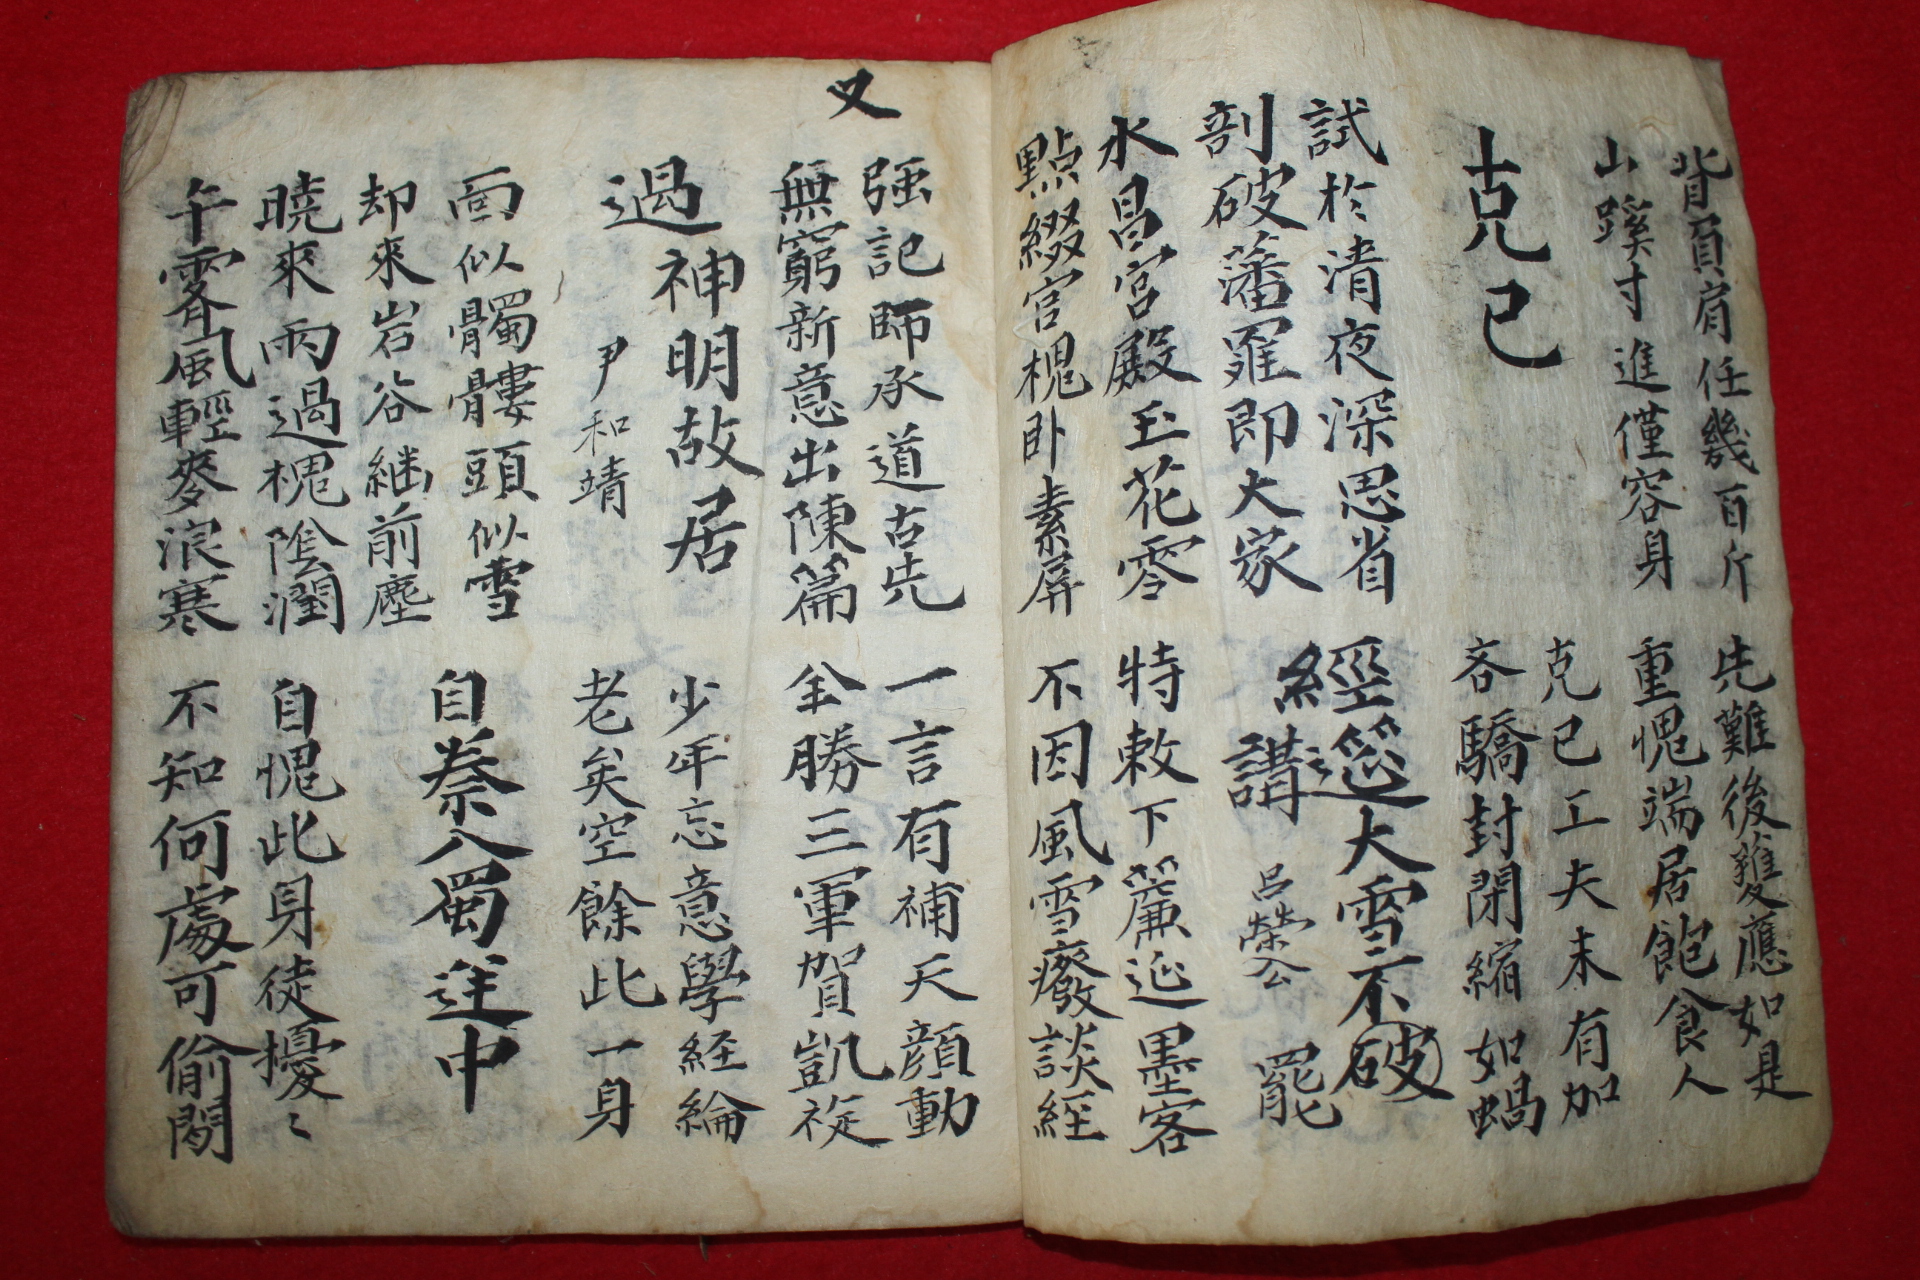 背負肩任幾百斤
山蹊寸進僅容身
先難後獲應如是
重愧端居飽食人
克己
克己工夫未有加
吝驕封閉縮如蝸
試於清夜深思省
剖破藩羅即大家
經筵大雪不破
講 呂榮公 罷
水昌宮殿玉花零
點綴官槐卧素屏
特敕下簾延墨客
不因風雪廢談經
又
强記師承道古先
無窮新意出陳篇
一言有補天顔動
全勝三軍賀凱旋
過神明故居
尹和靖
少年忘意學経綸
老矣空餘此一身
面似髑髏頭似雪
却來岩谷継前塵
自秦入蜀道中
曉來雨過槐陰潤
午霽風輕麥浪寒
自愧此身徒擾〻
不知何處可偷閑